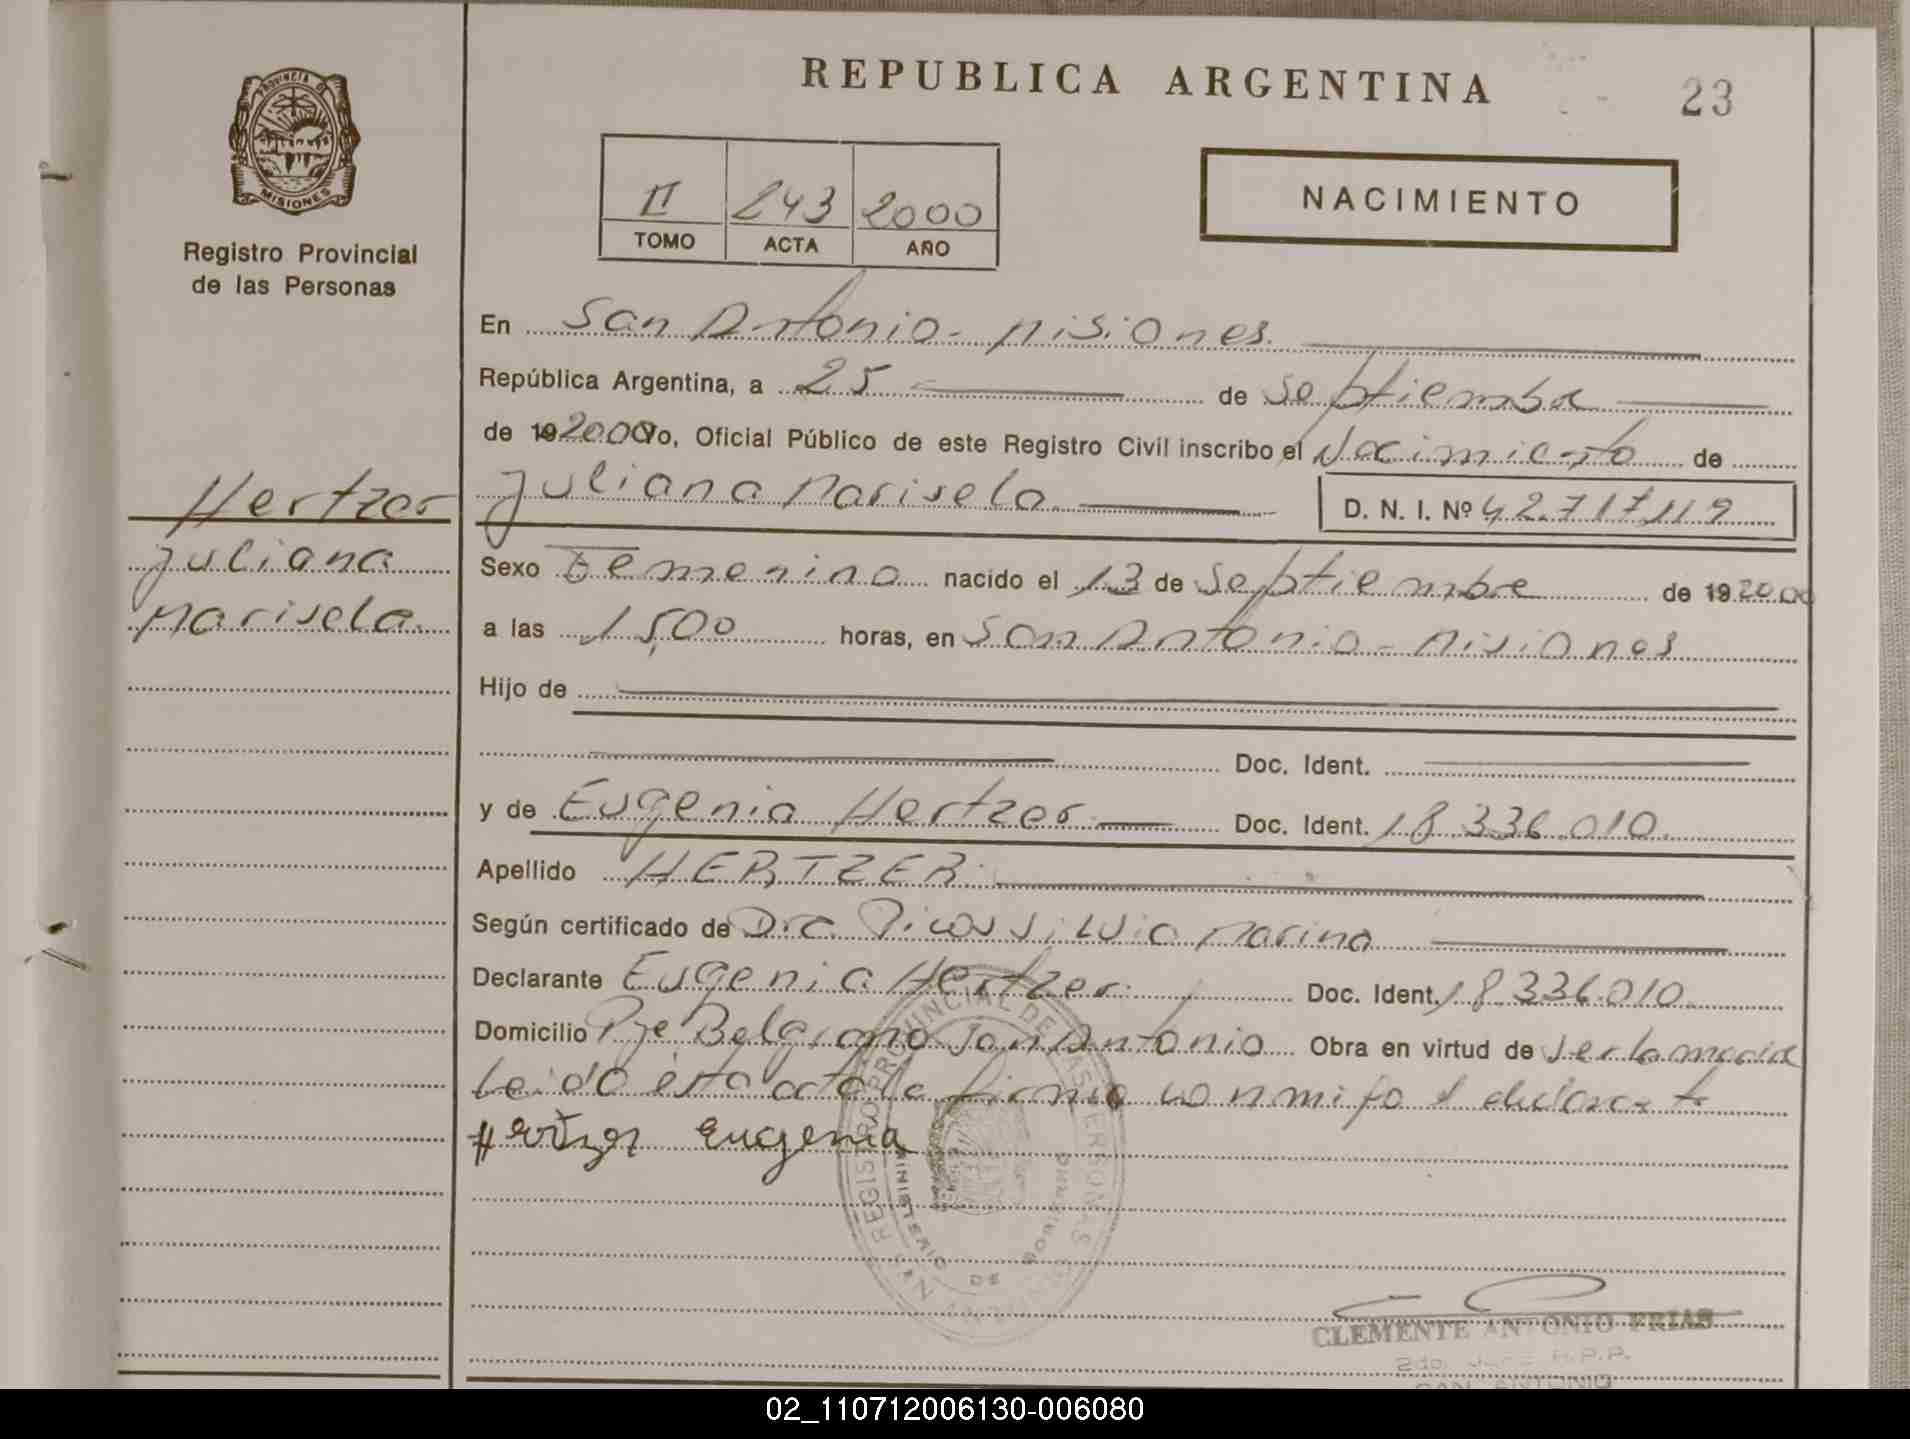 REPUBLICA ARGENTINA
23
PROVINCIA DE
MISIONES
Registro Provincial
de las Personas
II 243 2000
TOMO ACTA AÑO
NACIMIENTO
En San Antonio - Misiones.
República Argentina, a 25 de Septiembre
de 192000 Yo, Oficial Público de este Registro Civil inscribo el Nacimiento de
Juliana Marisela
D. N. I. Nº 42.717.119
Hertzer
Juliana
Marisela.
Sexo Femenino nacido el 13 de Septiembre de 19 2000
a las 15,00 horas, en San Antonio - Misiones
Hijo de
Doc. Ident.
y de Eugenia Hertzer Doc. Ident. 18.336.010.
Apellido HERTZER.
Según certificado de Dra. Silvia Marina
Declarante Eugenia Hertzer. Doc. Ident. 18.336.010.
Domicilio Pje Belgrano San Antonio Obra en virtud de ser la madre
Leido ésta acta la firma conmigo el declarante
Hertzer Eugenia
REGISTRO PROVINCIAL DE LAS PERSONAS
MINISTERIO DE GOBIERNO
CLEMENTE ANTONIO FRIAS
2do. R.P.P.
SAN ANTONIO
02_110712006130-006080